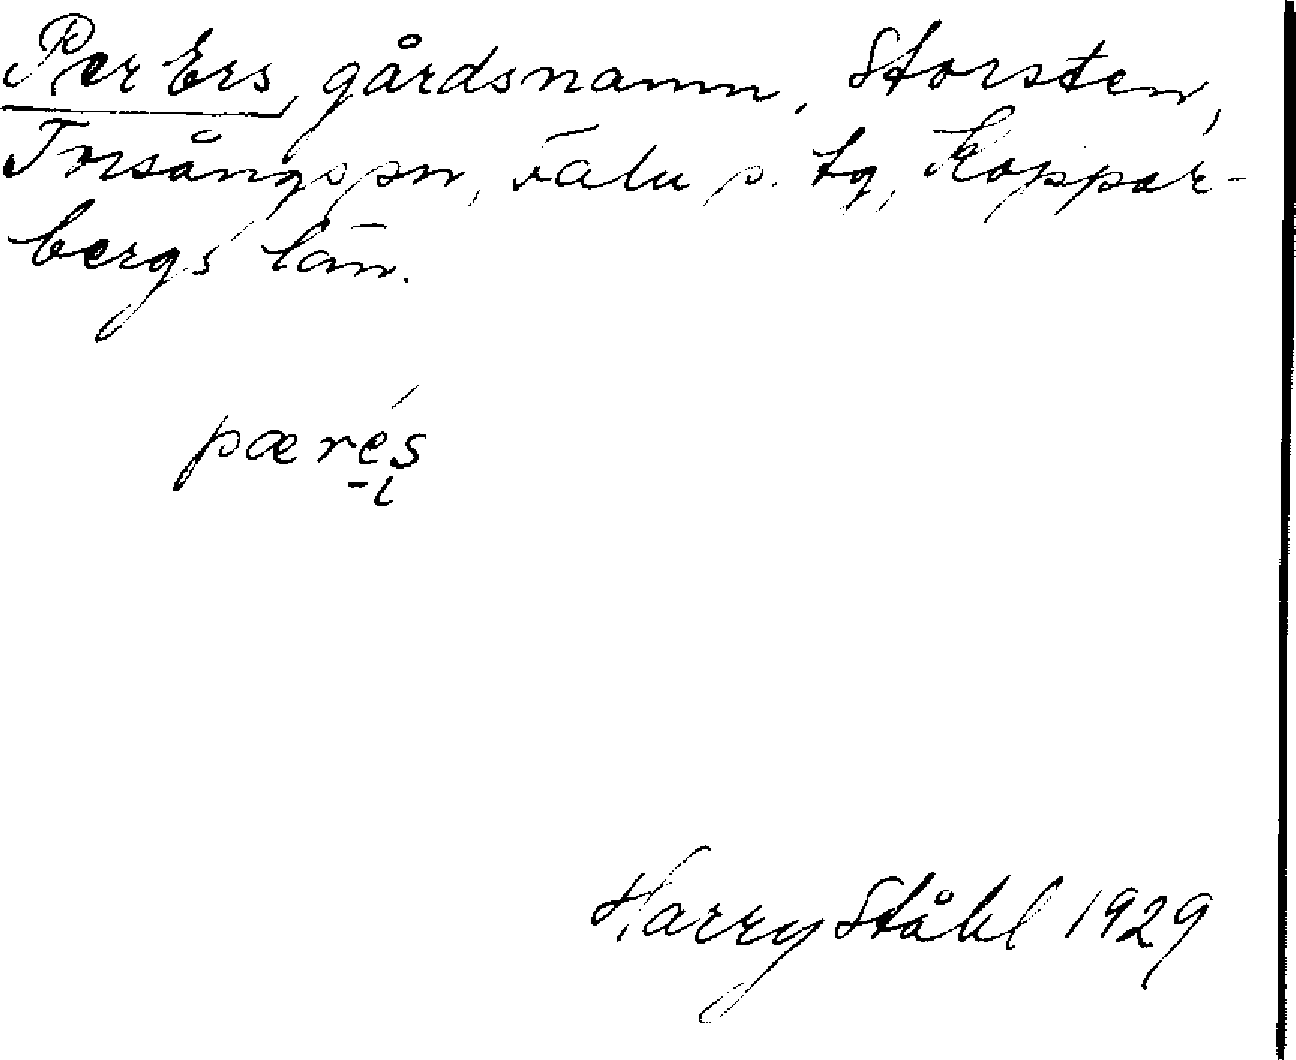 Per Ers, gårdsnamn, Storsten,
Torsångs sn, Falu s. tg, Koppar-
bergs län.
pærés
Harry Ståhl 1929